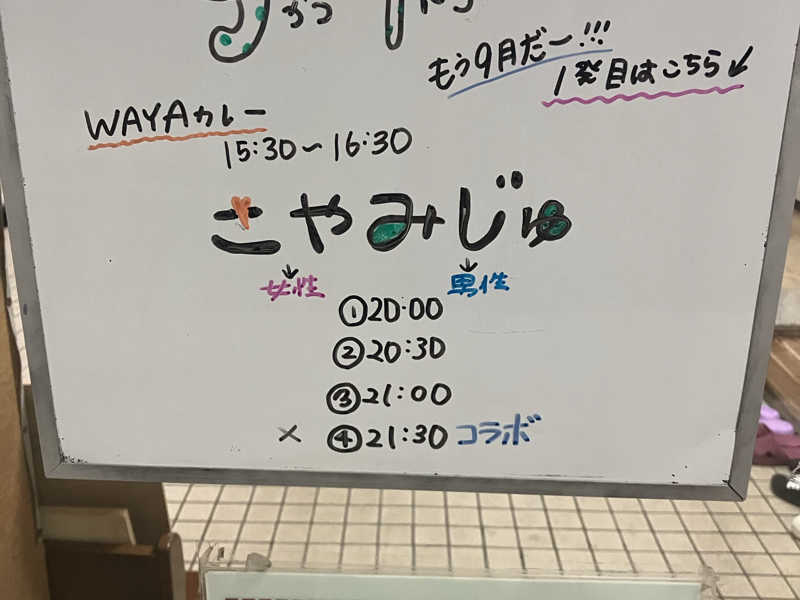 もう9月だー!!!
1発目はこちら↙
WAYAカレー
15:30〜16:30
こやみじゅ
↓ ↓
女性 男性
①20:00
②20:30
③21:00
× ④21:30 コラボ